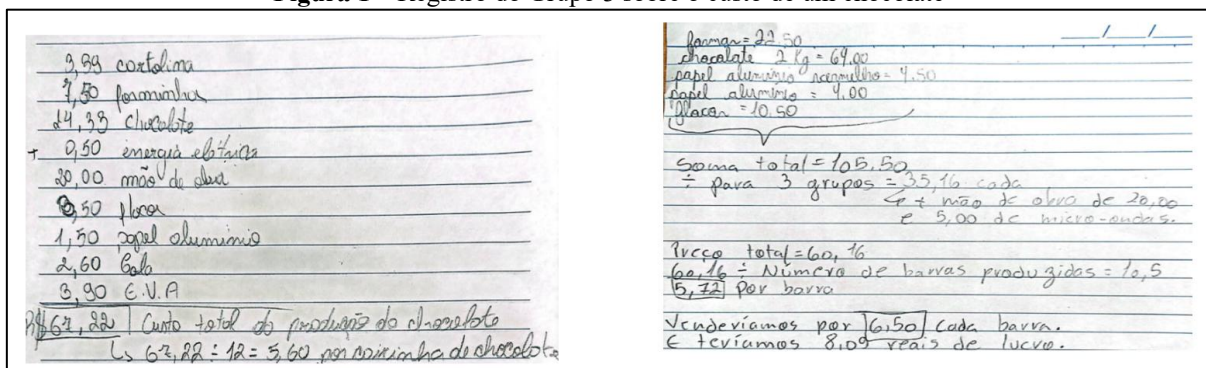 3,99 cartolina
7,50 forminhas
24,33 chocolate
+ 0,50 energia elétrica
20,00 mão de obra
3,50 placa
1,50 papel aluminio
2,60 Cola
3,90 E.V.A
R$ 67,22 Custo total da produção do chocolate
↳ 67,22 ÷ 12 = 5,60 por caixinha de chocolate
formar = 22,50
chocolate 2 Kg = 64,00
papel alumínio vermelho = 4.50
papel alumínio = 4.00
placa = 10.50
Soma total = 105.50
÷ para 3 grupos = 35,16 cada
+ mão de obra de 20,00
e 5,00 de micro-ondas.
Preço total = 60,16
60,16 ÷ Número de barras produzidas = 10,5
5,72 Por barra
Venderíamos por 6,50 Cada barra.
E teríamos 8,09 reais de lucro.